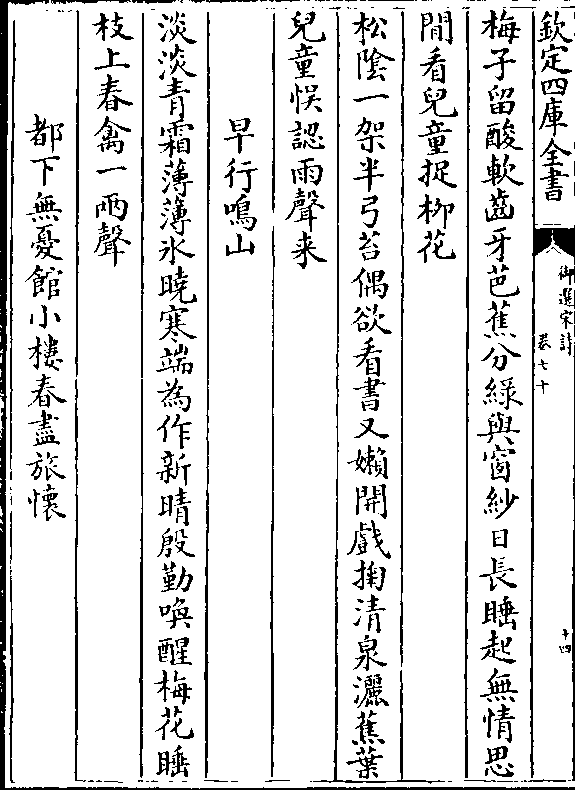 欽定四庫全書
御選宋詩
卷七十
十四
梅子留酸軟齒牙芭蕉分綠與窗紗日長睡起無情思
閒看兒童捉柳花
松陰一架半弓苔偶欲看書又懶開戲掬清泉灑蕉葉
兒童悮認雨聲来
早行鳴山
淡淡青霜薄薄氷曉寒端為作新晴殷勤喚醒梅花睡
枝上春禽一兩聲
都下無憂館小樓春盡旅懷